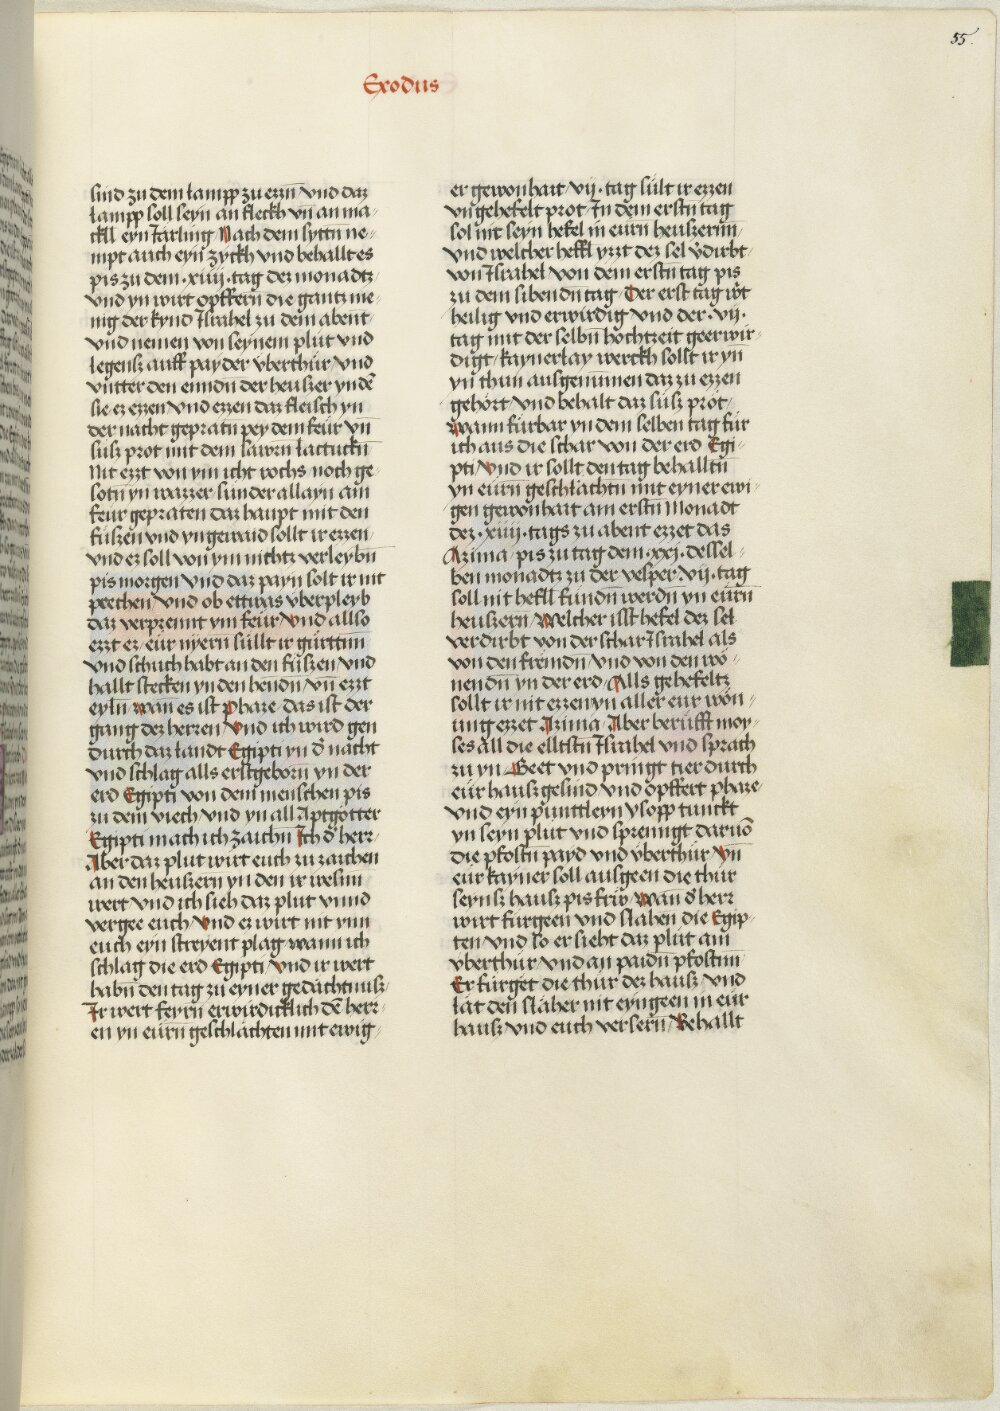 55.
Exodus
sind zu dem lampp zu ezzn̄ vnd daz
lampp soll seyn an fleckh vn̄ an ma-
ckll eyn Iärling Nach dem syttn̄ ne-
mpt auch eyn zyckh vnd behallt es
pis zu dem .xiiij. tag dez monadtz
vnd yn wirt opffern̄ die gantz me-
nig der kynd Israhel zu dem abent
vnd nemen von seynem plůt vnd
legensz auff payder vberthür vnd
vntter den enndn̄ der hewszer yn dē
sie ez ezzen vnd ezzen daz fleisch yn
der nacht gepratn̄ pey dem feür vn̄
süsz prot mit dem sawrn̄ lactuckn̄
Nit ezzt von ym icht rochs noch ge-
sotn̄ yn wazzer sünder allayn am
feur gepraten daz haupt mit den
füszen vnd yngewaid sollt ir ezzen
vnd ez soll von ym nichtz verleybn̄
pis morgen vnd daz payn solt ir nit
prechen vnd ob ettwas vberpleyb
daz verprennt ym feür vnd allso
ezzt ez eür nyern süllt ir gürttnn
vnd schuch habt an den füszen vnd
hallt stecken yn den hendn̄ vn̄ ezzt
eyln̄ wan̄ es ist phaze das ist der
gang dez herzen vnd ich wird gen
durch daz landt Egipti yn d' nacht
vnd schlag alls erstgeborn̄ yn der
erd Egipti von dem menschen pis
zu dem viech vnd yn all Aptgötter
Egipti mach ich zaichn̄ Ich d' herz
Aber daz plut wirt euch zu zaichen
an den hewszern yn den ir wesnn
wert vnd ich sieh daz plut vnnd
vergee euch vnd ez wirt nit ynn
euch eyn streyent plag wann ich
schlag die erd Egipti vnd ir wert
habn̄ den tag zu eyner gedächtnusz
Ir wert feyrn̄ erwirdicklich dē herz-
en yn eürn̄ geschlächten mit ewig-
er gewonhait vij. tag sült ir ezzen
vngehefelt prot In dem erstn̄ tag
sol nit seyn hefel in eurn̄ hewszernn
vnd welcher heffl yzzt dez sel v'dirbt
von Israhel von dem erstn̄ tag pis
zu dem sibendn̄ tag Der erst tag w't
heilig vnd erwirdig vnd der .vij.
tag mit der selbn̄ höchtzeit geerwir-
digt kaynerlay werckh sollt ir yn
yn̄ thun ausgenūmen daz zu ezzen
gehört vnd behalt daz süsz prot
Wann fürbar yn dem selben tag für
ich aus die schar von der erd Egi-
pti vnd ir sollt den tag behalltn̄
yn eürn̄ geschlächtn̄ mit eyner ewi-
gen gewonhait am erstn̄ Monadt
dez .xiiij. tags zu abent ezzet das
Azima pis zu tag dem .xxj. dessel-
ben monadtz zu der vesper .vij. tag
soll nit hefll fundn̄ werdn̄ yn eürn̄
hewszern̄ Welcher isst hefel dez sel
verdirbt von der schar Israhel als
von den fremdn̄ vnd von den wö-
nendn̄ yn der erd Alls gehefeltz
sollt ir nit ezzen yn aller eur won-
ung ezzet Azima Aber berüfft moy-
ses all die elltstn̄ Israhel vnd sprach
zu yn Geet vnd pringt tier durch
eür hausz gesind vnd opffert phaze
vnd eyn pünttlern ysopp tunckt
yn seyn plut vnd sprenngt daruō
die pfostn̄ payd vnd vberthür vn̄
eür kayner soll ausgeen die thür
seynsz hausz pis frw wan̄ d' herz
wirt fürgeen vnd slahen die Egip-
ten vnd so er sieht daz plüt am
vberthür vnd an paidn̄ pfostnn
Er fürget die thür dez hausz vnd
lät den släher nit eyngeen in eür
hausz vnd euch versern̄ Behallt